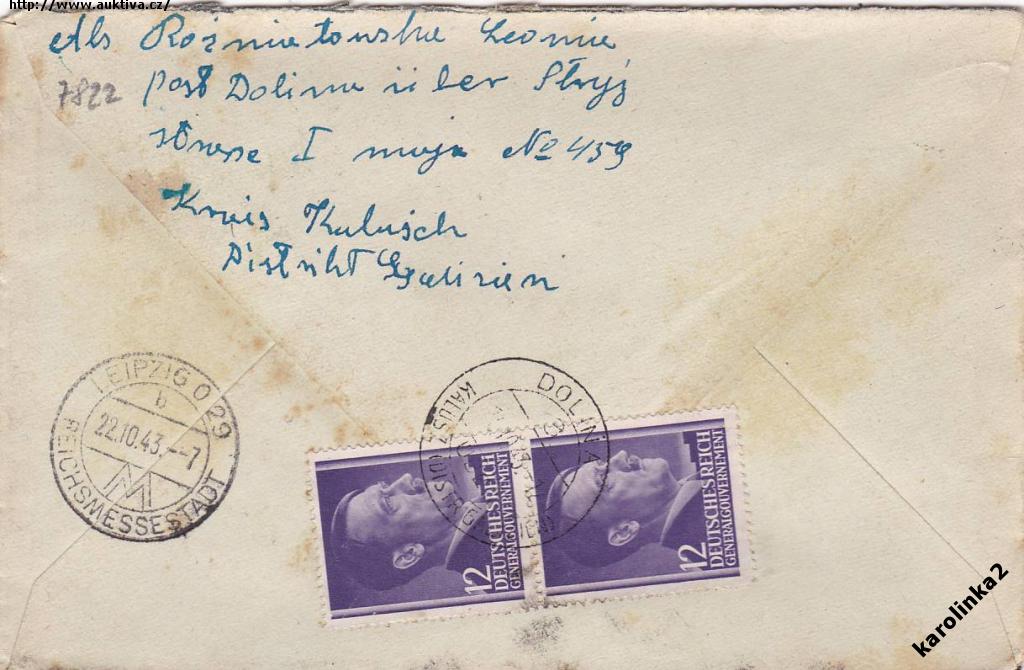 http://www.auktiva.cz/
Abs Rożniatowska Leonie
7822
post Dolina über Stryj
strasse I maja No 459
Kreis Kalusch
Distrikt Galizien
LEIPZIG O 29
b
22.10.43.--7
REICHSMESSESTADT
DOLINA
12
DEUTSCHES REICH
GENERALGOUVERNEMENT
12
DEUTSCHES REICH
GENERALGOUVERNEMENT
karolinka2